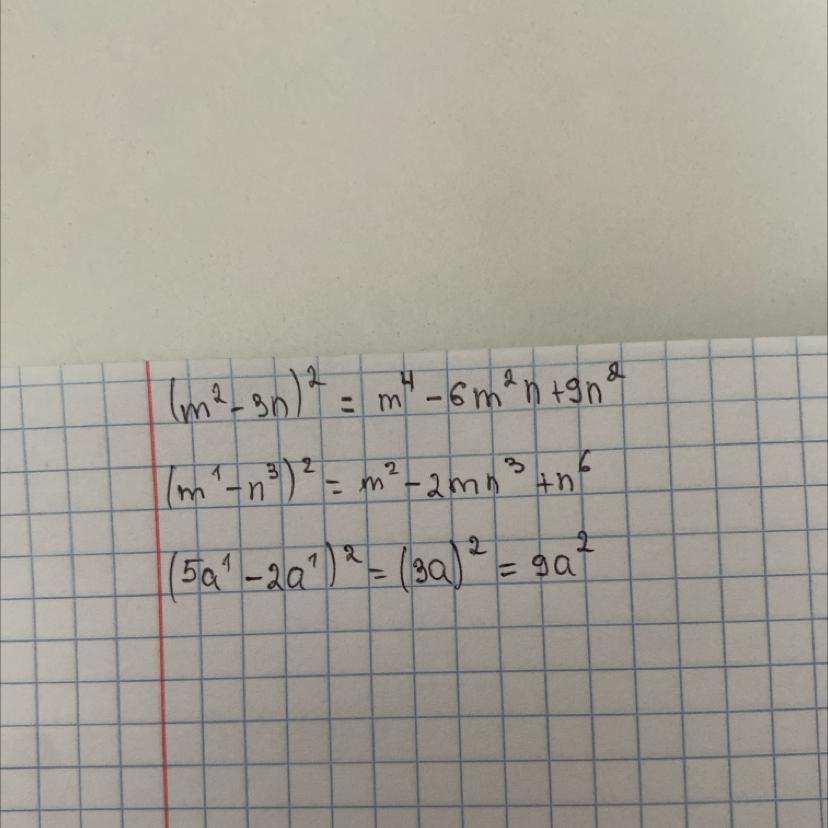 (m² - 3n)² = m⁴ - 6m²n + 9n²
(m¹ - n³)² = m² - 2mn³ + n⁶
(5a¹ - 2a¹)² = (3a)² = 9a²